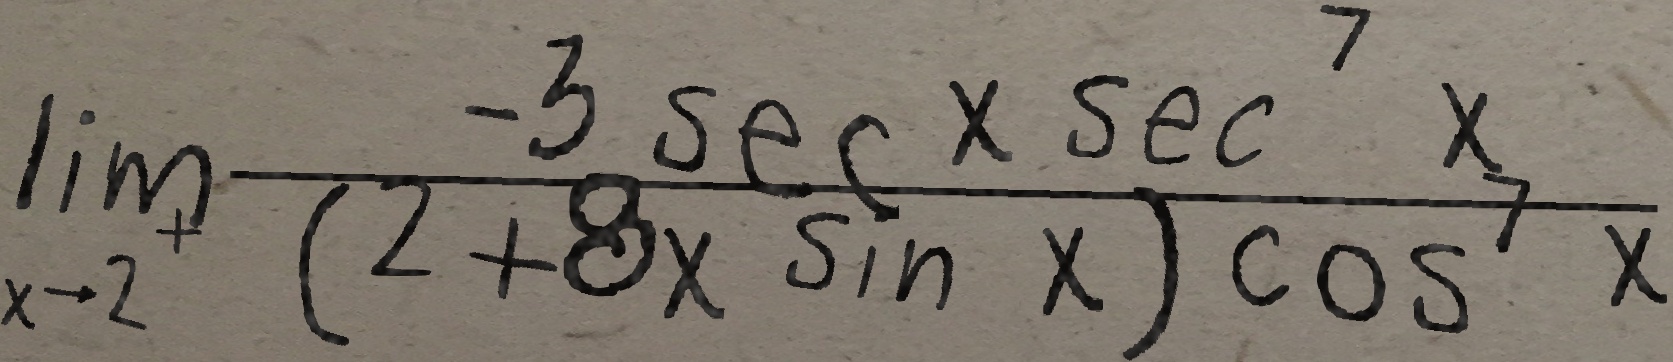 \lim_{x \to 2^+} \frac{-3 \sec x \sec^7 x}{(2 + 8x \sin x) \cos^7 x}